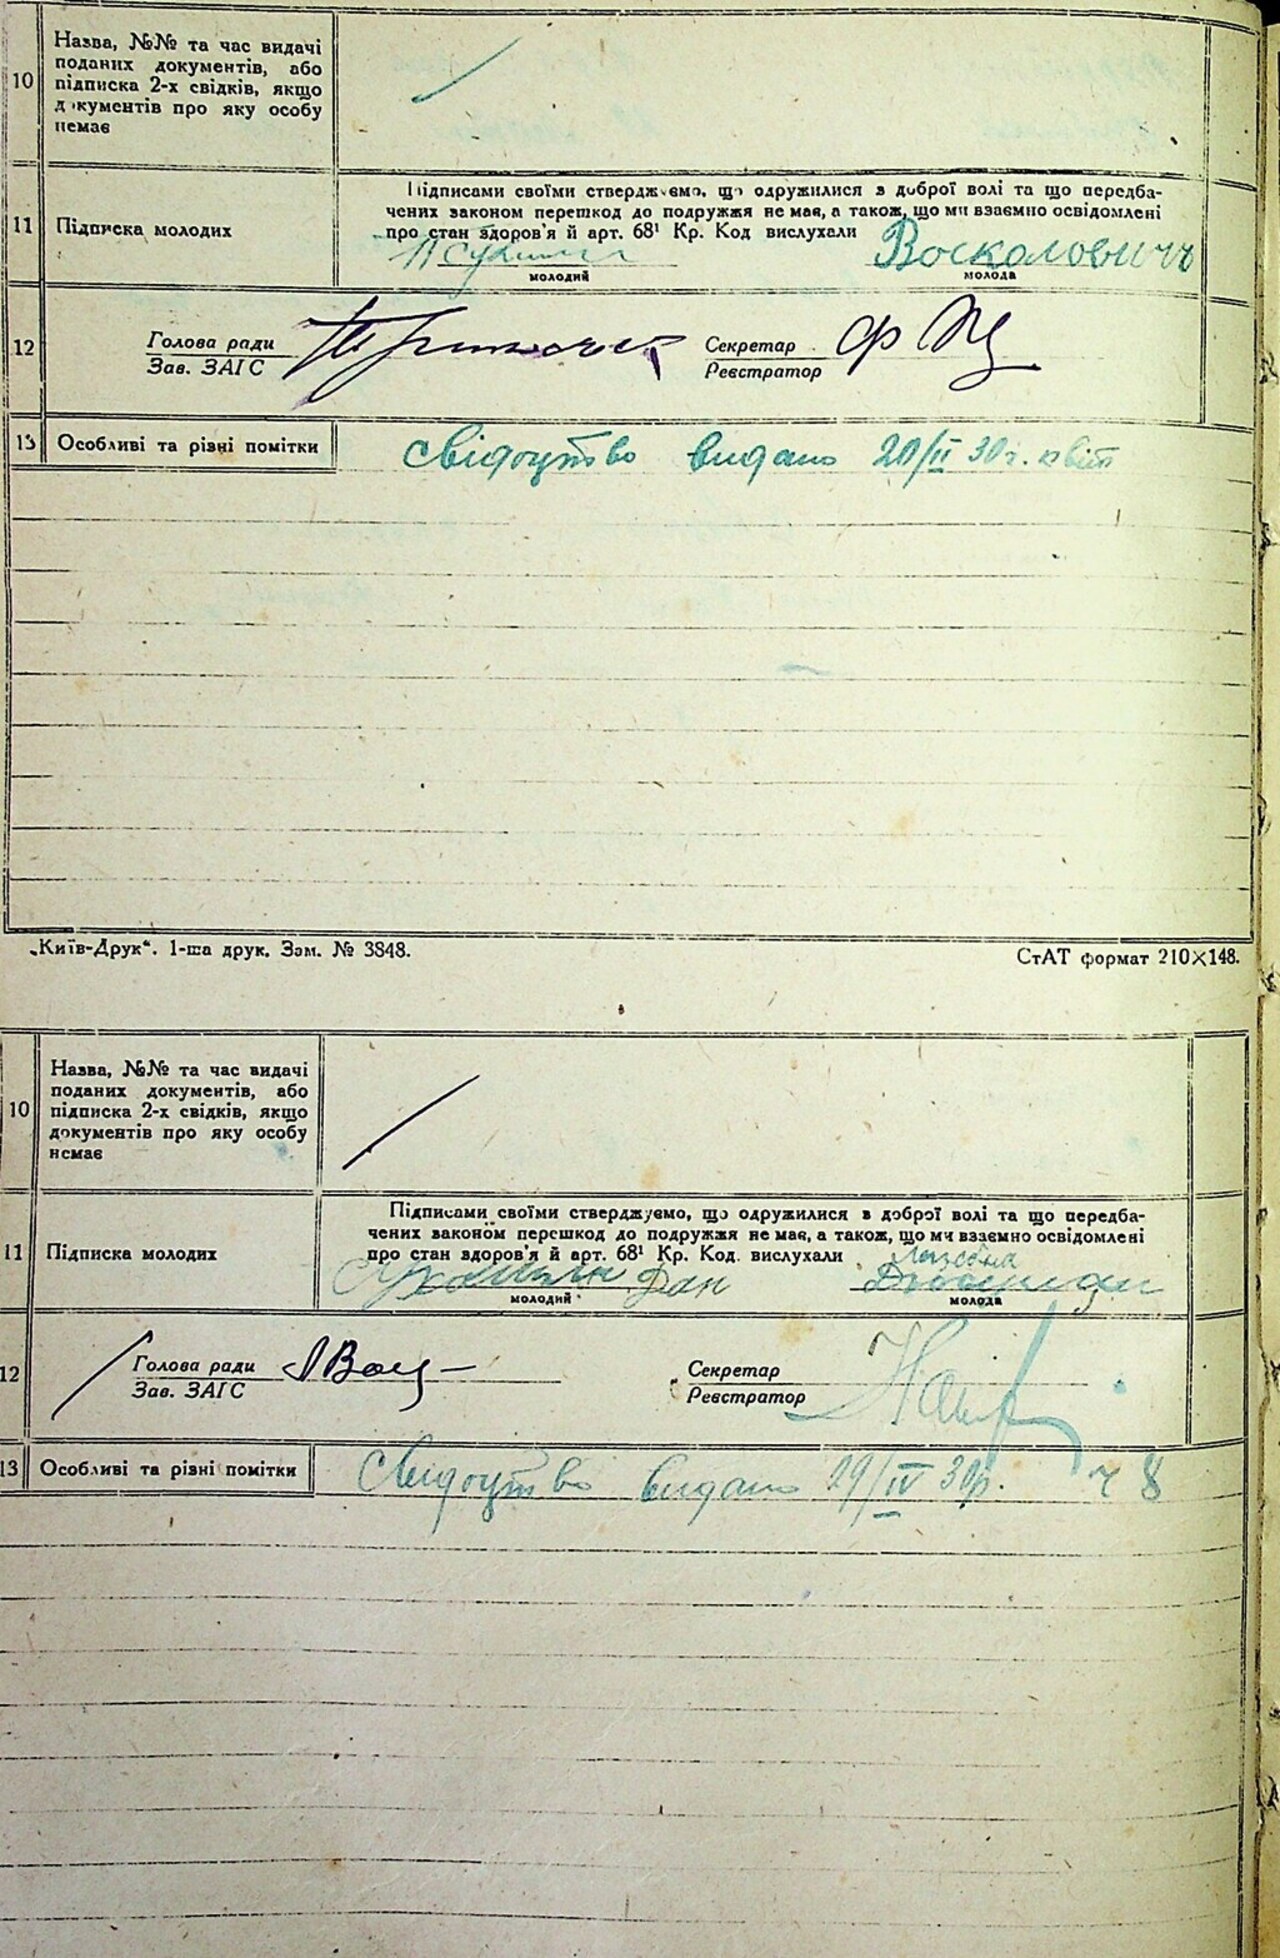 10
Назва, №№ та час видачі
поданих документів, або
підписка 2-х свідків, якщо
документів про яку особу
немає
11
Підписка молодих
Підписами своїми стверджуємо, що одружилися з доброї волі та що передба-
чених законом перешкод до подружжя не має, а також, що ми взаємно освідомлені
про стан здоров'я й арт. 68¹ Кр. Код вислухали
Восколовичъ
молодий
молода
12
Голова ради
Зав. ЗАГС
Секретар
Реєстратор
13
Особливі та різні помітки
свідоцтво видано 20/II 30г. квіт
„Київ-Друк“. 1-ша друк. Зам. № 3848.
СтАТ формат 210×148.
10
Назва, №№ та час видачі
поданих документів, або
підписка 2-х свідків, якщо
документів про яку особу
немає
11
Підписка молодих
Підписами своїми стверджуємо, що одружилися в доброї волі та що передба-
чених законом перешкод до подружжя не має, а також, що ми взаємно освідомлені
про стан здоров'я й арт. 68¹ Кр. Код. вислухали
молодий
молода
12
Голова ради
Зав. ЗАГС
Секретар
Реєстратор
13
Особливі та різні помітки
Свидоцтво видано 29/IV 30р. ч 8